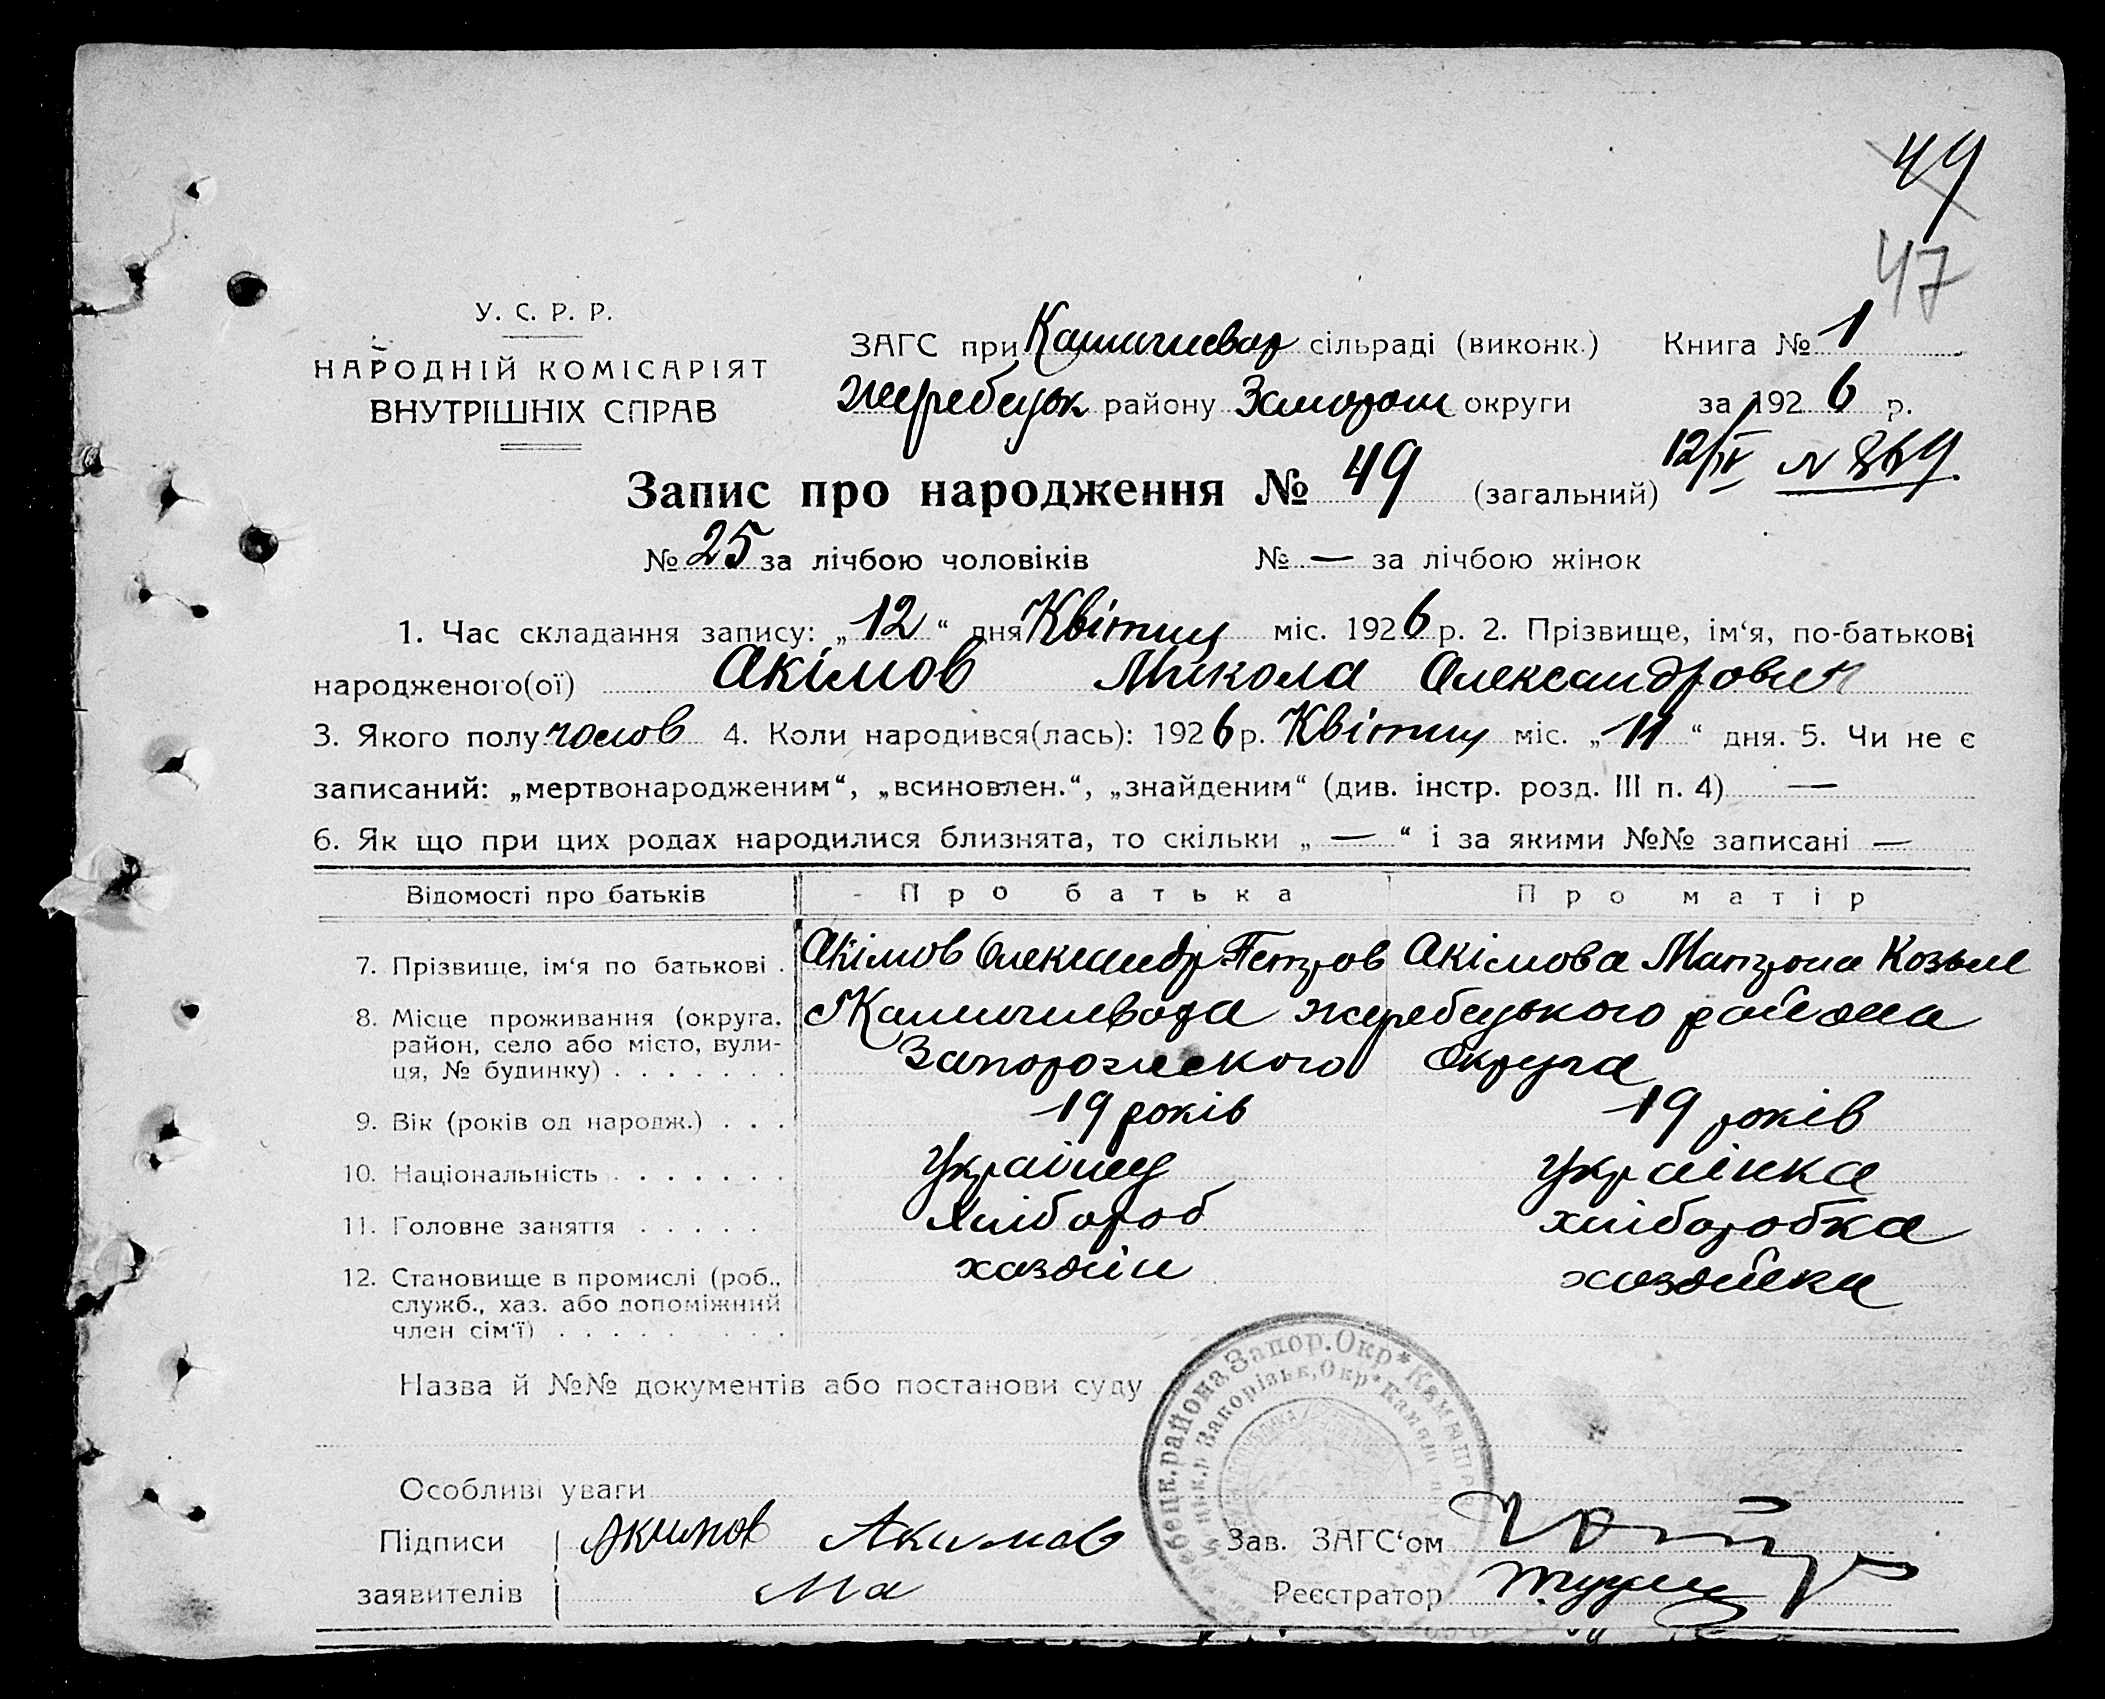 49
47
У. С. Р. Р.
НАРОДНІЙ КОМІСАРІЯТ
ВНУТРІШНІХ СПРАВ
ЗАГС при сільраді (виконк.) Книга № 1
Жеребецьк району Запорож округи за 1926 р.
12/IV N 869
Запис про народження № 49 (загальний)
№ 25 за лічбою чоловіків № — за лічбою жінок
1. Час складання запису: „12“ дня Квітня міс. 1926 р. 2. Прізвище, ім‘я, по-батькові
народженого(ої) Акімов Микола Олександрович
3. Якого полу чолов 4. Коли народився(лась): 1926 р. Квітня міс. „11“ дня. 5. Чи не є
записаний: „мертвонародженим“, „всиновлен.“, „знайденим“ (див. інстр. розд. III п. 4) —
6. Як що при цих родах народилися близнята, то скільки „ — “ і за якими №№ записані —
Відомості про батьків Про батька Про матір
7. Прізвище, ім‘я по батькові . Акімов Олександр Петров Акімова Матрона Козьм
8. Місце проживання (округа, район, село або місто, вулиця, № будинку) . . . . . . .
Жеребецького района
Запорожского Округа
9. Вік (років од народж.) . . . 19 років 19 років
10. Національність . . . . . . . Українец українка
11. Головне заняття . . . . . хлібороб хліборобка
12. Становище в промислі (роб., хазяїн хазяйка
служб., хаз. або допоміжний
член сім‘ї) . . . . . . . . .
Назва й №№ документів або постанови суду
Особливі уваги
Підписи Акимов Акимов Зав. ЗАГС‘ом
заявителів Ма Реєстратор
район Запор. Окр * Запорізьк, Окр *